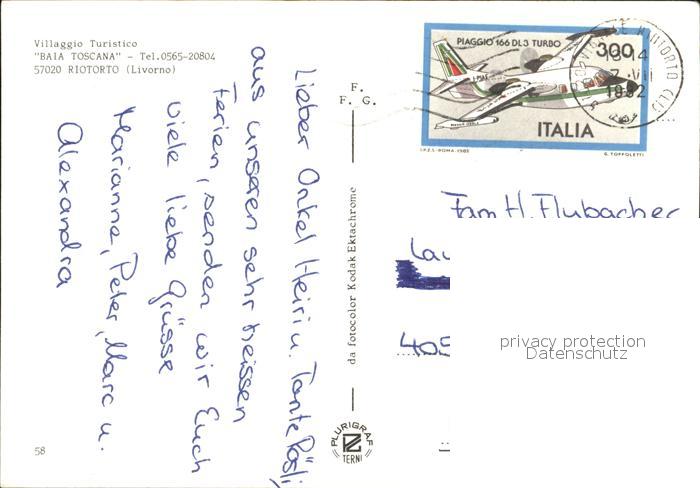 Villaggio Turistico
"BAIA TOSCANA" - Tel.0565-20804
57020 RIOTORTO (Livorno)
Lieber Onkel Heiri u. Tante Rösli,
aus unseren sehr heissen
Ferien, senden wir Euch
viele liebe Grüsse
Marianne, Peter, Marc u.
Alexandra
58
F.
F. G.
da fotocolor Kodak Ektachrome
PLURIGRAF
TERNI
PIAGGIO 166 DL3 TURBO
300
ITALIA
I.P.Z.S.-ROMA-1982
G. TOFFOLETTI
RIOTORTO (LI)
Fam H. Flubacher
Lau
405
privacy protection
Datenschutz